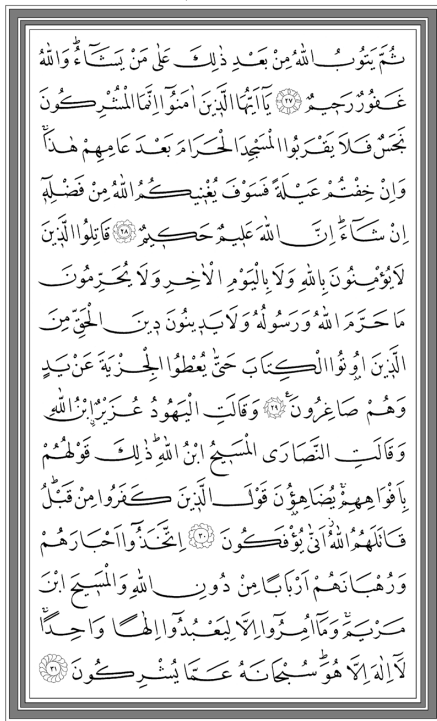 ثُمَّ يَتُوبُ اللّٰهُ مِنْ بَعْدِ ذٰلِكَ عَلٰى مَنْ يَشَٓاءُۜ وَاللّٰهُ
غَفُورٌ رَح۪يمٌ ﴿٢٧﴾ يَٓا اَيُّهَا الَّذ۪ينَ اٰمَنُٓوا اِنَّمَا الْمُشْرِكُونَ
نَجَسٌ فَلَا يَقْرَبُوا الْمَسْجِدَ الْحَرَامَ بَعْدَ عَامِهِمْ هٰذَاۚ
وَاِنْ خِفْتُمْ عَيْلَةً فَسَوْفَ يُغْن۪يكُمُ اللّٰهُ مِنْ فَضْلِه۪ٓ
اِنْ شَٓاءَۜ اِنَّ اللّٰهَ عَل۪يمٌ حَك۪يمٌ ﴿٢٨﴾ قَاتِلُوا الَّذ۪ينَ
لَا يُؤْمِنُونَ بِاللّٰهِ وَلَا بِالْيَوْمِ الْاٰخِرِ وَلَا يُحَرِّمُونَ
مَا حَرَّمَ اللّٰهُ وَرَسُولُهُ وَلَا يَد۪ينُونَ د۪ينَ الْحَقِّ مِنَ
الَّذ۪ينَ اُو۫تُوا الْكِتَابَ حَتّٰى يُعْطُوا الْجِزْيَةَ عَنْ يَدٍ
وَهُمْ صَاغِرُونَ۟ ﴿٢٩﴾ وَقَالَتِ الْيَهُودُ عُزَيْرٌۨ ابْنُ اللّٰهِ
وَقَالَتِ النَّصَارَى الْمَس۪يحُ ابْنُ اللّٰهِۜ ذٰلِكَ قَوْلُهُمْ
بِاَفْوَاهِهِمْۚ يُضَاهِؤُ۫نَ قَوْلَ الَّذ۪ينَ كَفَرُوا مِنْ قَبْلُۜ
قَاتَلَهُمُ اللّٰهُۘ اَنّٰى يُؤْفَكُونَ ﴿٣٠﴾ اِتَّخَذُٓوا اَحْبَارَهُمْ
وَرُهْبَانَهُمْ اَرْبَابًا مِنْ دُونِ اللّٰهِ وَالْمَس۪يحَ ابْنَ
مَرْيَمَۚ وَمَٓا اُمِرُٓوا اِلَّا لِيَعْبُدُٓوا اِلٰهًا وَاحِدًاۚ
لَٓا اِلٰهَ اِلَّا هُوَۜ سُبْحَانَهُ عَمَّا يُشْرِكُونَ ﴿٣١﴾